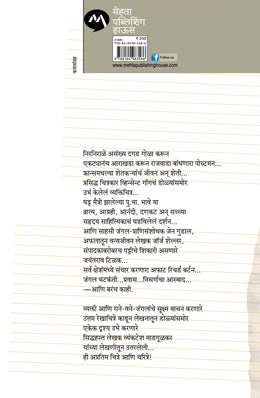 मेहता
पब्लिशिंग
हाऊस
₹ 200
Follow us
www.mehtapublishinghouse.com
निरनिराळे असंख्य दगड गोळा करून
एकट्यानंच आराखडा करून राजवाडा बांधणारा पोस्टमन...
फ्रान्समधल्या शेतकऱ्यांचं जीवन अन् शेती...
प्रसिद्ध चित्रकार व्हिन्सेन्ट गॉगचं डोळ्यांसमोर
उभं केलेलं व्यक्तिचित्र...
घट्ट मैत्री झालेल्या पु.भा. भावे या
व्रात्य, आग्रही, आनंदी, दणकट अन् सच्च्या
सहृदय साहित्यिकाचं घडविलेलं दर्शन...
आणि साहसी जंगल-प्राणिसंशोधक जेन गुडाल,
अफलातून वन्यजीवन लेखक जॉर्ज शेल्लर,
संपादकाबरोबरच पट्टीचे शिकारी असणारे
जयंतराव टिळक...
सर्व क्षेत्रांमध्ये संचार करणारा अफाट रिचर्ड बर्टन...
जंगल भटकंती...प्रवास...निसर्गाचा आस्वाद...
—आणि बरंच काही.
व्यक्ती आणि राने-वने-जंगलांचे सूक्ष्म वाचन करणारे
उत्तम रेखाचित्रे काढून लेखनातून डोळ्यांसमोर
एकेक दृश्य उभे करणारे
सिद्धहस्त लेखक व्यंकटेश माडगूळकर
यांच्या लेखणीतून उतरलेली...
ही अप्रतिम चित्रे आणि चरित्रे!